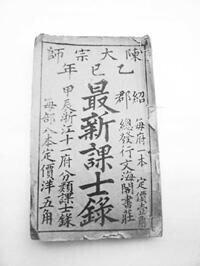 陳大宗師
乙巳年
紹郡
每府一本 定價壹角
總發行文海閣書莊
最新課士錄
甲辰新江十一府分類課士錄
每部八本定價洋五角